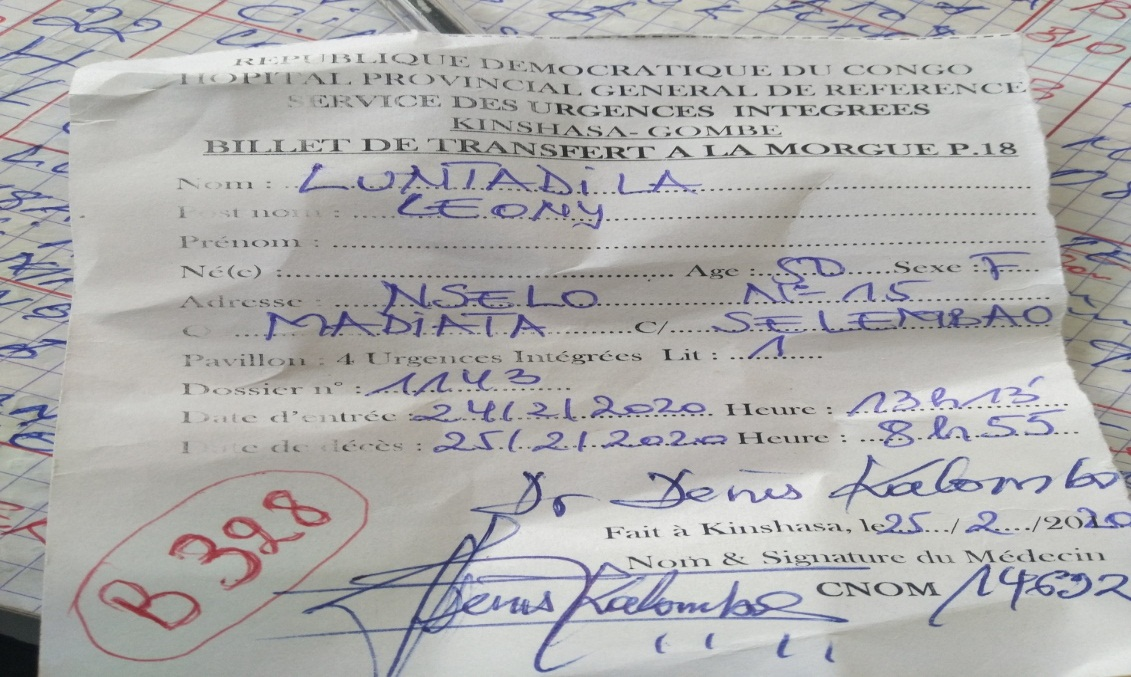 REPUBLIQUE DEMOCRATIQUE DU CONGO
HOPITAL PROVINCIAL GENERAL DE REFERENCE
SERVICE DES URGENCES INTEGREES
KINSHASA- GOMBE
BILLET DE TRANSFERT A LA MORGUE P.18
Nom : LUNTADiLA
Post nom : LEONY
Prénom :
Né(e) : Age : 5D Sexe : F
Adresse : NSELO N° 15
Q MADiATA C/ SELEMBAO
Pavillon : 4 Urgences Intégrées Lit : 1
Dossier n° : 1143
Date d'entrée : 24/2/2020 Heure : 13h13'
Date de décès : 25/2/2020 Heure : 8h55
Dr Denis Kalombo
Fait à Kinshasa, le 25/2/2020
Nom & Signature du Médecin
Denis Kalombo CNOM 14692
B 328